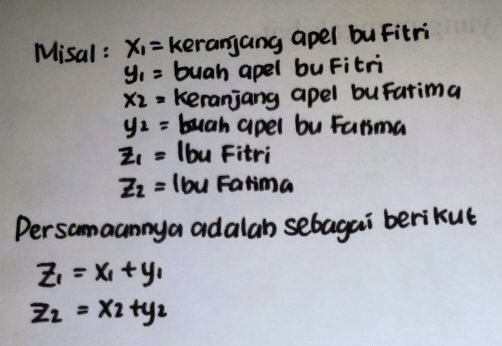 Misal : x₁ = keranjang apel bu Fitri
y₁ = buah apel bu Fitri
x₂ = keranjang apel bu Fatima
y₂ = buah apel bu Fatima
z₁ = Ibu Fitri
z₂ = Ibu Fatima
Persamaannya adalah sebagai berikut
z₁ = x₁ + y₁
z₂ = x₂ + y₂